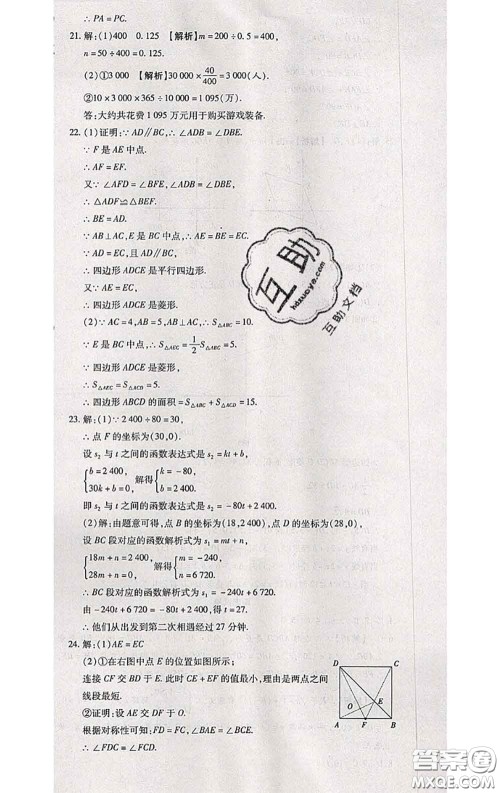 ∴ PA = PC.
21. 解:(1)400　0.125　【解析】m = 200 ÷ 0.5 = 400,
n = 50 ÷ 400 = 0.125.
(2)①3 000　【解析】30 000 × 40/400 = 3 000(人).
②10 × 3 000 × 365 ÷ 10 000 = 1 095(万).
答:大约共花费 1 095 万元用于购买游戏装备.
22. (1)证明:∵ AD // BC, ∴ ∠ADB = ∠DBE.
∵ F 是 AE 中点.
∴ AF = EF.
又∵ ∠AFD = ∠BFE, ∠ADB = ∠DBE,
∴ △ADF ≌ △EBF.
∴ BE = AD.
∵ AB ⊥ AC, E 是 BC 中点, ∴ AE = BE = EC.
∵ AD = EC, 且 AD // BC,
∴ 四边形 ADCE 是平行四边形.
又∵ AE = EC,
∴ 四边形 ADCE 是菱形.
(2)∵ AC = 4, AB = 5, AB ⊥ AC, ∴ S△ABC = 10.
∵ E 是 BC 中点, ∴ S△AEC = 1/2 S△ABC = 5.
∵ 四边形 ADCE 是菱形,
∴ S△AEC = S△ACD = 5.
∴ 四边形 ABCD 的面积 = S△ABC + S△ACD = 15.
23. 解:(1)∵ 2 400 ÷ 80 = 30,
∴ 点 F 的坐标为(30,0).
设 s₂ 与 t 之间的函数表达式是 s₂ = kt + b,
{b = 2 400, 30k + b = 0, 解得 {k = -80, b = 2 400,
即 s₂ 与 t 之间的函数表达式是 s₂ = -80t + 2 400.
(2)解:由题意可得, 点 B 的坐标为(18,2 400), 点 D 的坐标为(28,0),
设 BC 段对应的函数解析式为 s₁ = mt + n,
{18m + n = 2 400, 28m + n = 0, 解得 {m = -240, n = 6 720.
∴ BC 段对应的函数解析式为 s₁ = -240t + 6 720.
由 -240t + 6 720 = -80t + 2 400, 得 t = 27.
∴ 他们从出发到第二次相遇经过 27 分钟.
24. 解:(1)AE = EC
(2)①在右图中点 E 的位置如图所示;
连接 CF 交 BD 于 E. 此时 CE + EF 的值最小, 理由是两点之间
线段最短.
②证明:设 AE 交 DF 于 O.
根据对称性可知:FD = FC, ∠BAE = ∠BCE.
∴ ∠FDC = ∠FCD.
D C
O E
A F B
互助
hdzuoye.com
互助文档
答案圈
MXQE.COM